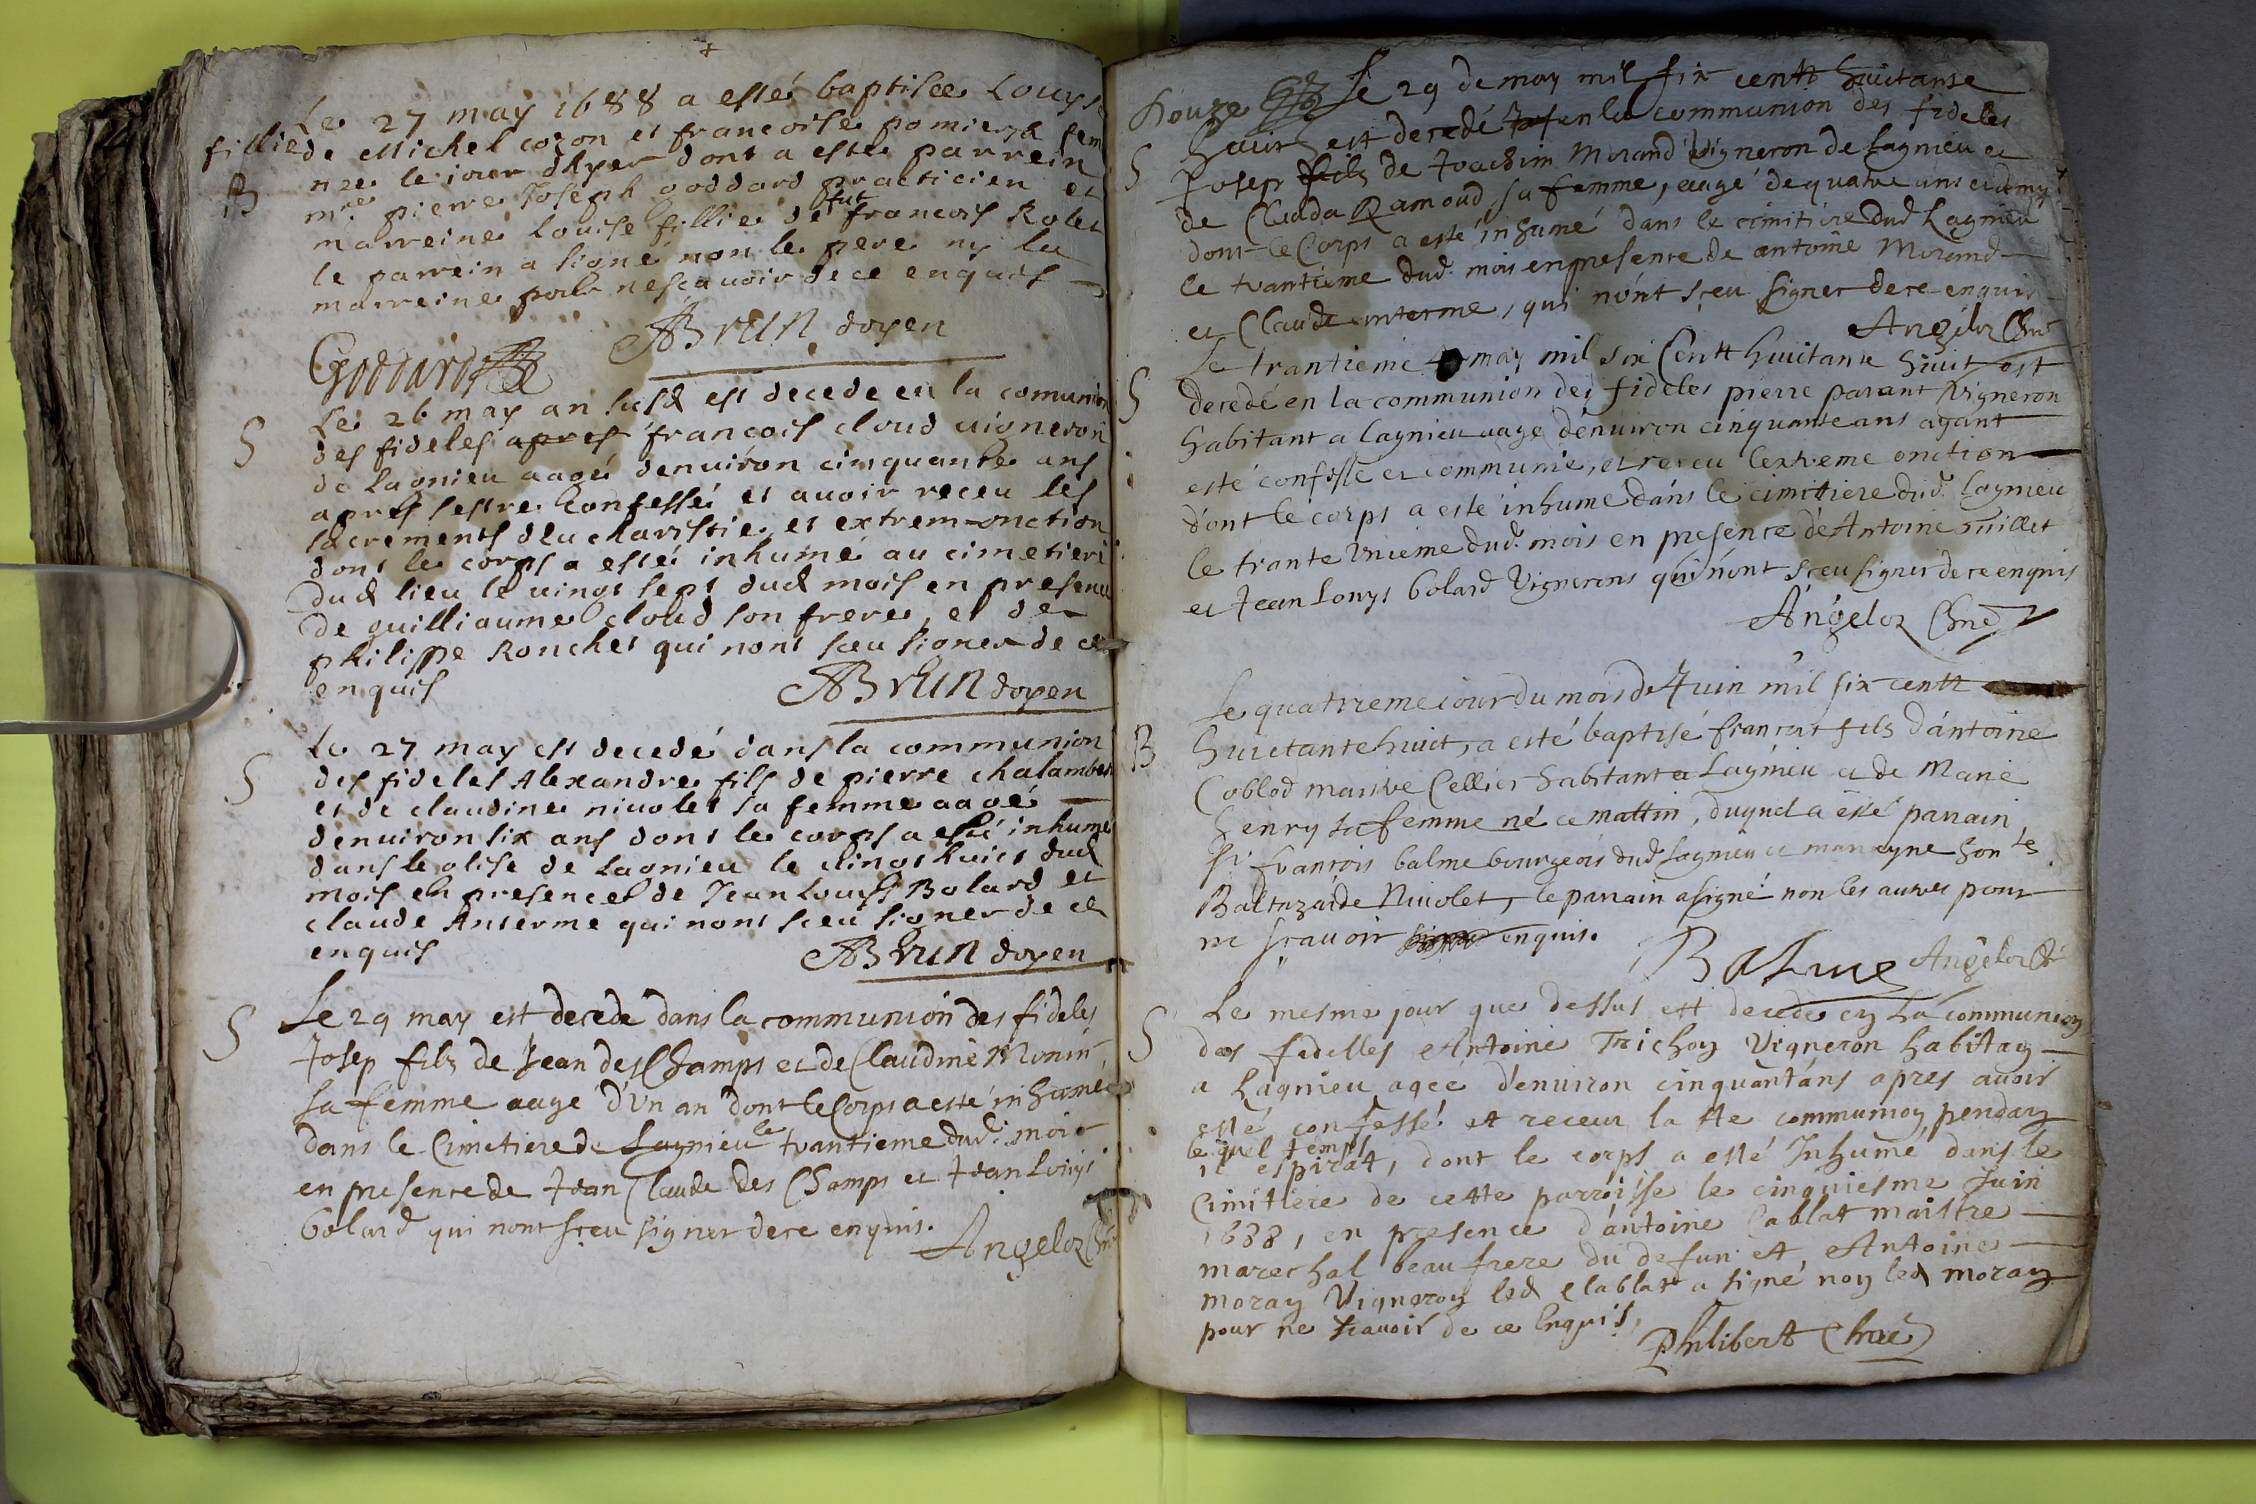 Le 27 may 1688 a esté baptisée Louyse
fillie de Michel cozon et francoise pomiers fem
née le iour dhyer dont a este parrein
B
mre. pierre Joseph goddard practicien et
marreine louise fillie de feu francois Rolet
le parrein a signé non le pere ny la
marreine pour nesca uoir de ce enquis
Goddard
ABrun doyen
S
Le 26 may an susd est decede en la comunion
des fideles apres francois cloud uigneron
de lagnieu aagé denuiron cinquante ans
apres sestre confessé et auoir receu les
sacrements deucharistie et extrem-onction
dont le corps a esté inhumé au cimetiere
dud lieu le uingt sept dud mois en presence
de guilliaume cloud son frere et de
philippe Ronchet qui nont sceu signer de ce
enquis
ABrun doyen
S
Le 27 may est decedé dans la communion
des fideles Alexandre fils de pierre chalambe
et de claudine niuolet sa femme aagé
denuiron six ans dont le corps a esté inhumé
dans leglise de lagnieu le uingt huict dud
mois en presence de Jean Louys Bolard et
claude Anterme qui nont sceu signer de ce
enquis
ABrun doyen
S
Le 29 may est decede dans la communion des fideles
Josep filz de Jean des Champs et de Claudine Monin
sa femme aage d'Vn an dont le Corps a esté inhumé
dans le Cimetiere de Lagnieu le trantieme dud. mois
en presence de Jean Claude des Champs et Jean Louys
bolard qui nont sceu signer de ce enquis.
Angeloz Chne
douze
Le 29 de may mil six centt huictanse
huict est decedé en la communion des fideles
S
Josep filz de Joachim Morand Vigneron de Lagnieu et
de Clauda Ramoud sa femme, aagé de quatre ans et demy
dont le Corps a esté inhumé dans le cimitiere dud Lagnieu
le trantieme dud. mois en presense de antoine Morand
et Claude anterme, qui nónt sçeu signer de ce enquis
Angeloz Chne
S
Le trantieme may mil six Centt huictante huict est
decedé en la communion des fideles pierre parant Vigneron
habitant a lagnieu aage d'enuiron cinquante ans ayant
esté confesse et communié, et receu lextreme onction
dont le corps a esté inhumé dans le cimittiere dud. lagnieu
le trante Vnieme dud. mois en presence de Antoine millet
et Jean Louys bolard Vignerons qui nont sceu signer de ce enquis
Angeloz Chne
Le quatrieme iour du mois de Juin mil six centt
B
huictante huict, a esté baptisé francois fils d'antoine
Coblod maistre Cellier habitant a Lagnieu et de Marie
henry sa femme né ce mattin, duquel a esté parrain
Sr. francois balme bourgeois dud. lagnieu et marrayne honte.
Baltazarde Niuolet, le parrain a signé non les autres pour
ne sçauoir enquis.
Balme Angeloz Ch
Le mesme jour que dessus est decede en La communion
S
des fidelles Antoine Trichon Vigneron habitan
a Lagnieu agée d'enuiron cinquant'ans apres auoir
esté confessé et receu la ste communion, pendan
lequel temps
il espirat, dont le corps a esté Inhumé dans le
Cimitiere de cette parroisse le cinquiesme Juin
1688, en presence d'antoine Cablat maistre
marechal beau frere du defunt et Antoine
moran Vigneron led Clablat a signé non led moran
pour ne scauoir de ce Enquis,
Philibert Chne